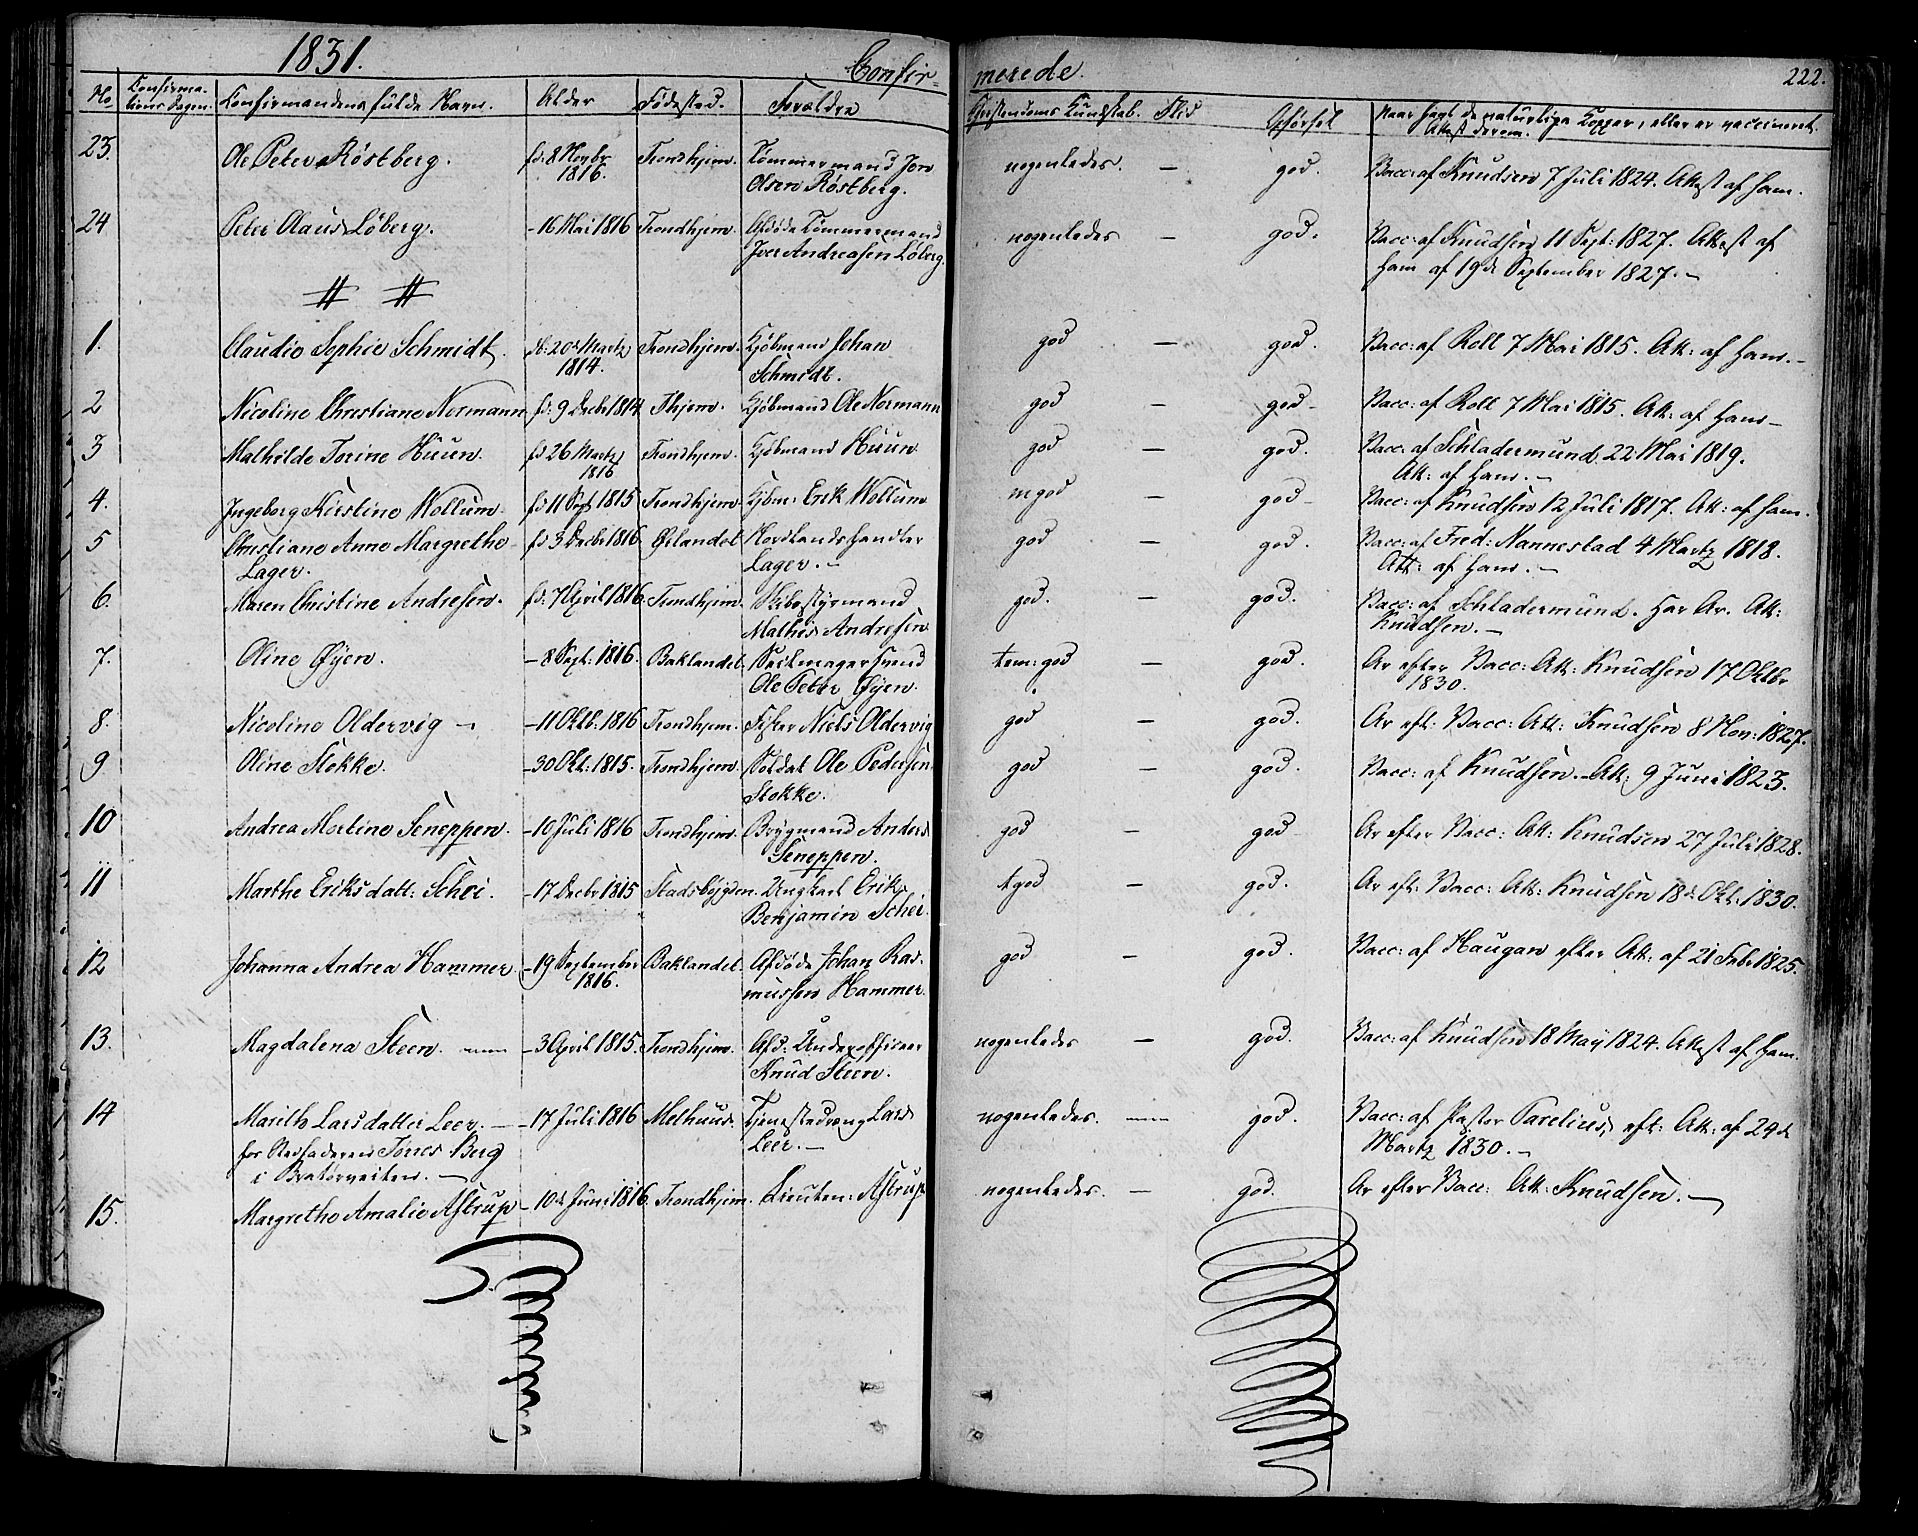 1831. Confirmerede. 222.
No Confirmations Dagen. Konfirmandens fulde Navn. Alder Fødested. Forældre Christendoms Kundskab. Flid Opførsel Naar havt de naturlige Kopper, eller er vaccineret. Attest derom.
23. Ole Peter Røstberg. fd: 8 Novbr 1816. Trondhjem. Tømmermand Jon Olsen Røstberg. nogenledes. — god. Vacc: af Knudsen 7 Juli 1824. Attest af ham.
24 Peter Olaus Løberg. - 16 Mai 1816 Trondhjem. Afdøde Tømmermand Iver Andreasen Løberg. nogenledes — god. Vacc: af Knudsen 11 Sept: 1827. Attest af
ham af 19de September 1827. —
# #
1. Claudie Sophie Schmidt. fd: 20de Martz 1814. Trondhjem. Kjøbmand Johan Schmidt. god — god. Vacc: af Roll 7 Mai 1815. Att: af ham. -
2 Nicoline Christiane Normann fd: 9 Decbr 1814 Thjem. Kjøbmand Ole Normann god — god - Vacc: af Roll 7 Mai 1815. Att: af ham -
3 Mathilde Torine Huun. fd 26 Martz 1816 Trondhjem. Kjøbmand Huun god — god. Vacc: af Schladermund 22 Mai 1819.
Att: af ham. —
4. Ingeborg Kirstine Wollum fd 11 Sept 1815 Trondhjem Kjøbm: Erik Wollum mgod — god - Vacc: af Knudsen 12 Juli 1817. Att: af ham.
5 Christiane Anne Margrethe Lager. fd 3 Decbr 1816 Ørlandet Nordlandshandler Lager. — god — god. Vacc: af Fred: Nannestad 4 Martz 1818.
Att: af ham. —
6. Maren Christine Andresen. fd: 7 April 1816. Trondhjem. Skibsstyrmand Mathis Andresen god. — god. Vacc: af Schladermund. har Ar. Att:
Knudsen. —
7. Oline Øyen. - 8 Sept: 1816. Baklandet Seilmagersvend Ole Peter Øyen. tem: god — god. Ar efter Vacc: Att: Knudsen 17 Oktbr
1830.
8. Nicoline Oldervig — - 11 Oktb: 1816 Trondhjem. Fisker Niels Oldervig god — god. Ar eft: Vacc: Att: Knudsen 8 Nov: 1827.
9 Oline Stokke. - 30 Okt: 1815. Trondhjem. Soldat Ole Pedersen Stokke. god — god. Vacc: af Knudsen. Att: 9 Juni 1823.
10 Andrea Martine Seneppen. - 10 Juli 1816 Trondhjem. Brygmand Anders Seneppen. god — god Ar efter Vacc: Att: Knudsen 27 Juli 1828.
11 Marthe Eriksdatt: Schei. - 17 Decbr 1815 Stadsbygden. Ungkarl Erik Benjamin Schei. tgod — god. Ar eft: Vacc: Att: Knudsen 18de Okt: 1830.
12 Johanna Andrea Hammer. - 19 September 1816. Baklandet. Afdøde Johan Rasmussen Hammer. god — god. Vacc: af Haugan efter Att: af 21 Febr 1825.
13. Magdalena Steen. - 3 April 1815. Trondhjem. Afd: Underofficeer Knud Steen. nogenledes — god. Vacc: af Knudsen 18 May 1824. Attest af ham.
14 Marith Larsdatter Leer. — - 17 Juli 1816 Melhuus. Tjenestedreng Lars Leer. — nogenledes. — god. Vacc: af Pastor Parelius, eft: Att: af 29de
Martz 1830. —
hos Tønnes Berg
i Bratørveiten. —
15. Margrethe Amalie Astrup - 10de Juni 1816 Trondhjem. Lieuten: Astrup nogenledes. — god. Ar efter Vacc: Att: Knudsen. —